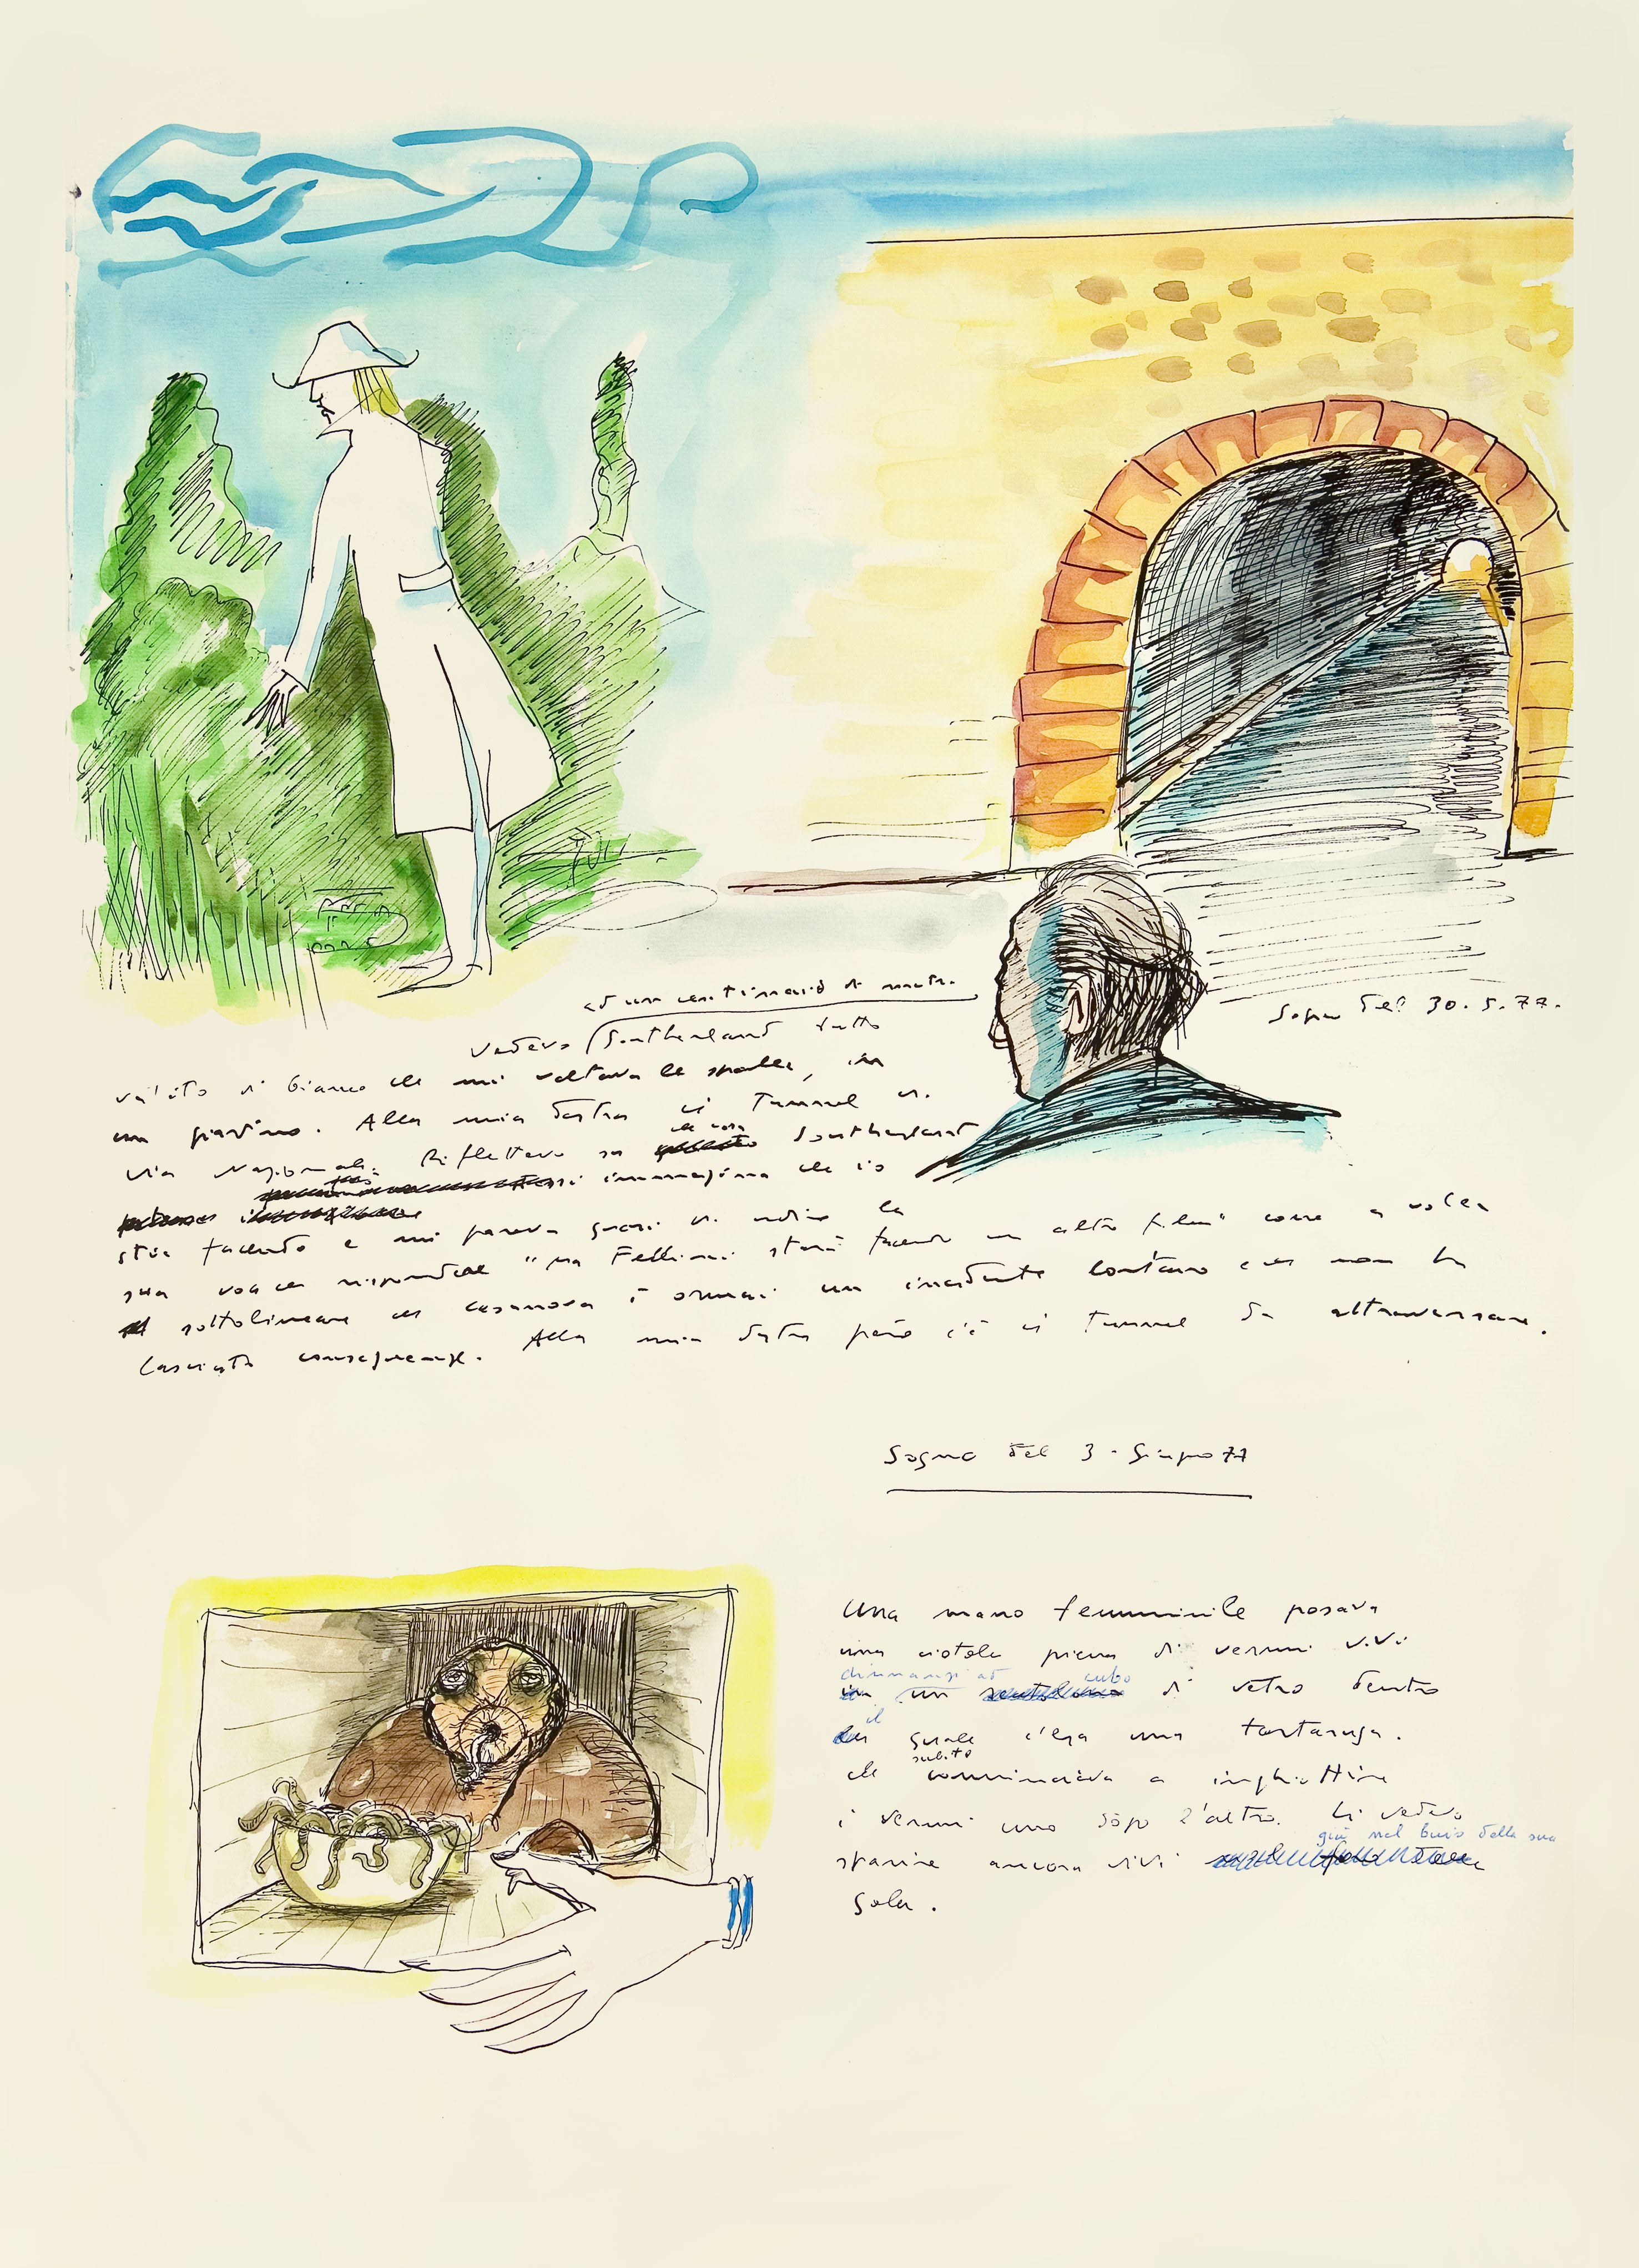 ad un centinaio di metri.
Sogno del 30.5.77.
Vedevo Sutherland tutto
vestito di bianco che mi voltava le spalle, in
un giardino. Alla mia destra il Tunnel di
che cosa
via Nazionale. Riflettevo su Southerland
si immagina che io
stia facendo e mi pareva quasi di udire la
sua voce rispondere "ma Fellini starà facendo un altro film" come a voler
sottolineare che Casanova è ormai un incidente lontano che non ha
lasciato conseguenze. Alla mia destra però c'è il Tunnel da attraversare.
Sogno del 3 - Giugno 77
Una mano femminile posava
una ciotola piena di vermi vivi
dinnanzi ad cubo
un di vetro dentro
il
quale c'era una tartaruga.
subito
che cominciava a inghiottire
i vermi uno dopo l'altro. Li vedevo
giù nel buio della sua
sparire ancora vivi
gola.